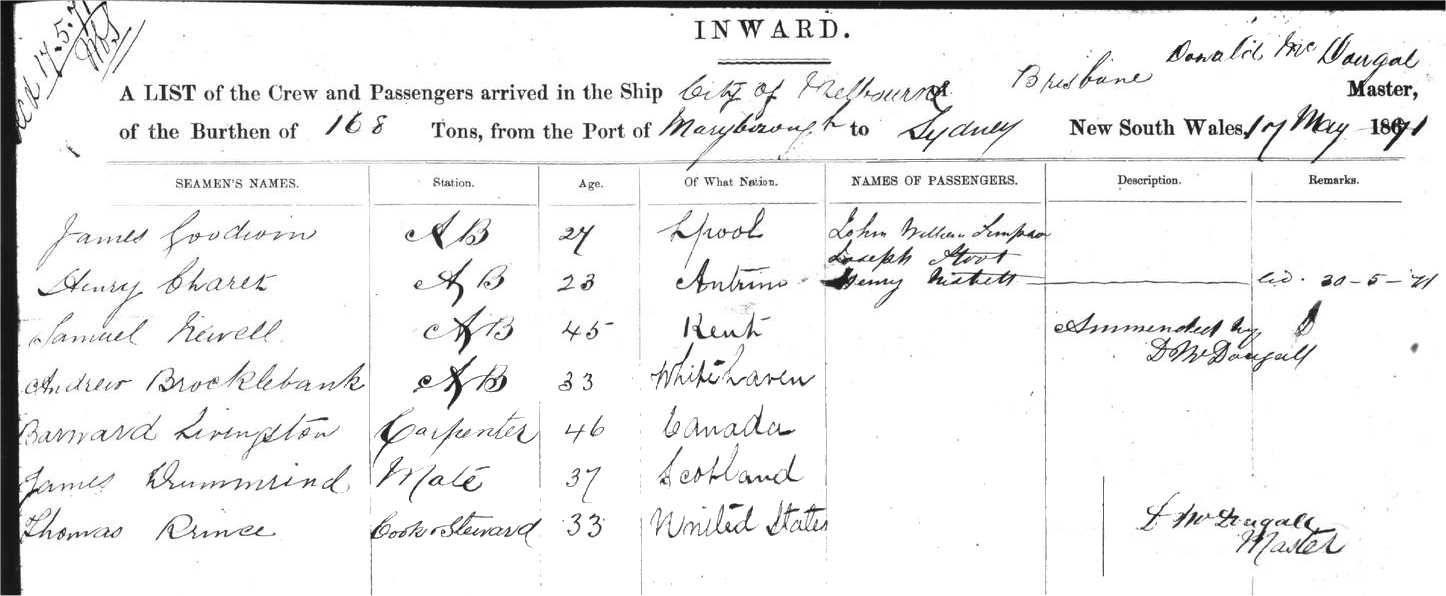 17.5.71
INWARD.
Donald Mc Dougal
A LIST of the Crew and Passengers arrived in the Ship City of Melbourne of Brisbane Master,
of the Burthen of 168 Tons, from the Port of Maryborough to Sydney New South Wales, 17 May 1871
SEAMEN'S NAMES. Station. Age. Of What Nation. NAMES OF PASSENGERS. Description. Remarks.
James Goodwin A B 27 Lpool John William Simpson
Joseph Stoot
Henry Charet A B 23 Antrim Henry Nisbett 30-5-71
Samuel Newell A B 45 Kent Ammended by
D McDougall
Andrew Brocklebank A B 33 Whitehaven
Barnard Livingston Carpenter 46 Canada
James Drummrind Mate 37 Scotland
Thomas Prince Cook & Steward 33 United States D McDougall
Master